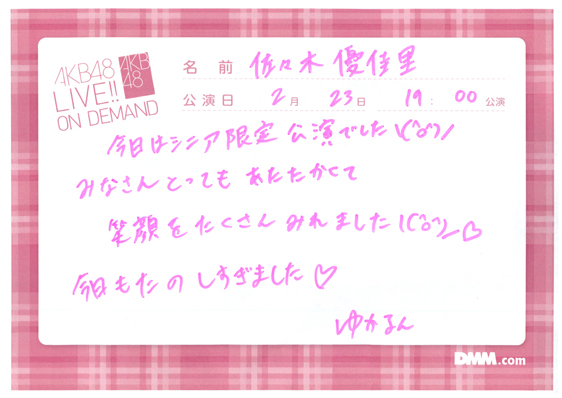 AKB48
LIVE!!
ON DEMAND
AKB
48
名 前 佐々木 優佳里
公演日 2月 23日 19:00 公演
今日はシニア限定公演でした\(^o^)/
みなさんとってもあたたかくて
笑顔をたくさんみれました\(^o^)/♡
今日もたのしすぎました♡
ゆかるん
DMM.com